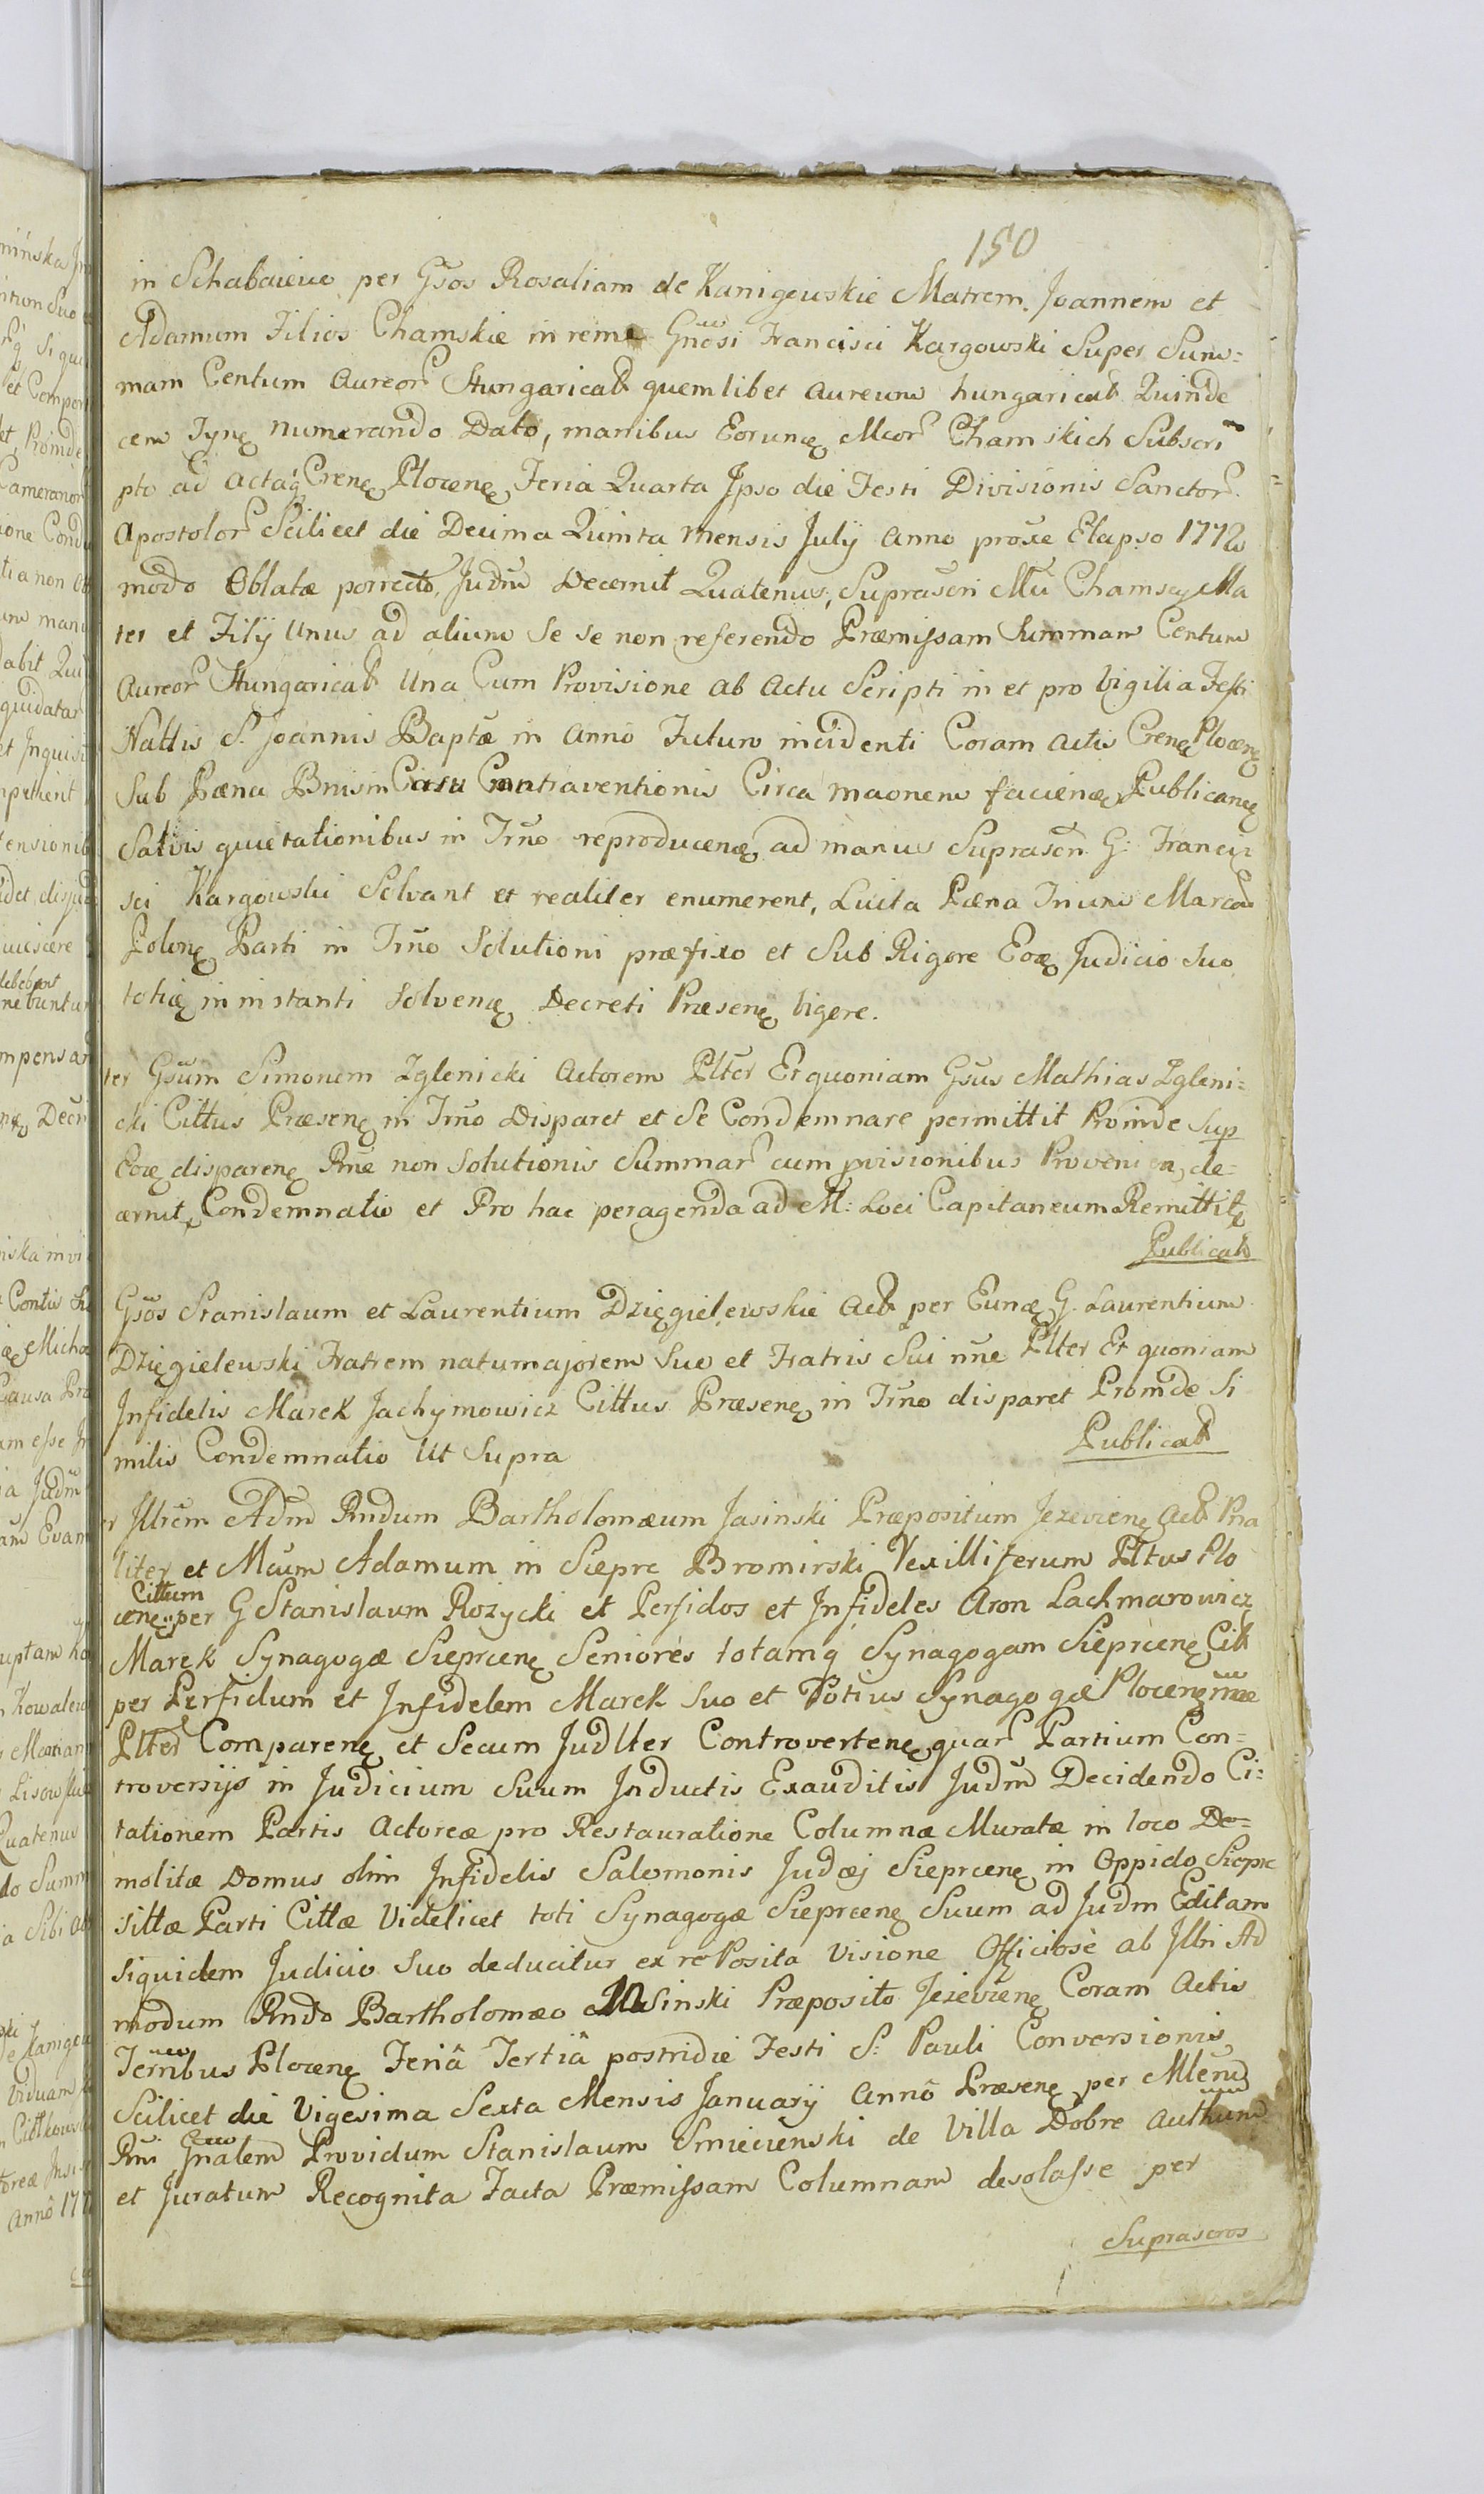 150
in Schabaiewo per Gsos Rosaliam de Kanigowskie Matrem Joannem et
Adamum Filios Chamskie in rem Gnosi Francisci Kargowski Super Sum=
mam Centum Aureor Hungaricab quemlibet Aureum hungaricab Quinde
cem Tynf numerando Dato, manibus Eorunq Mcor Chamskich Subscri
pto ad Acta Crenq Plocenq Feria Quarta Ipso die Festi Divisionis Sanctor
Apostolor Scilicet die Decima Quinta mensis July Anno proxe Elapso 1772
modo Oblatæ porrecto, Judm Decernit Quatenus, Suprascri Mci Chamscy Ma
ter et Filij Unus ad alium Se se non referendo Præmissam Summam Centum
Aureor Hungaricab Una Cum Provisione ab Actu Scripti in et pro Vigilia Festi
Nattis S. Joannis Baptæ in Anno Futuro incidenti Coram Actis Crenq Plocenq
Sub Pæna Bnis in Casu Contraventionis Circa maonem facienq Publicanq
Sativis quietationibus in Trno reproducenq ad manus Suprascri G: Franci
sci Kargowski Solvant et realiter enumerent, Luita Pæna Trium Marcar
Polonq Parti in Trno Solutioni præfixo et Sub Rigore Eoq Judicio Suo
totiq in instanti Solvenq Decreti Præsenq Vigore.
ter Gsum Simonem Zglenicki Actorem Plter Et quoniam Gsus Mathias Zgleni=
cki Cittus Præsenq in Trno Disparet et Se Condemnare permittit Proinde Sup
Eoq disparenq Rne non Solutionis Summar cum pvisionibus Provenien de=
cernit Condemnatio et Pro hac peragenda ad M: Loci Capitaneum Remittit
Publicab
Gsos Stanislaum et Laurentium Dzięgielewskie Act per Eunq G. Laurentium
Dzięgielewski Fratrem natu majorem Suo et Fratris Sui nne Plter Et quoniam
Infidelis Marek Jachymowicz Cittus Præsenq in Trno disparet Proinde Si
milis Condemnatio Ut Supra
Publicab
r Illrem Adm Rndum Bartholomæum Jasinski Præpositum Jezevienq Act Pna
liter et Mcum Adamum in Siepre Bromirski Vexilliferum Pltus Plo
Cittum
cenq per G Stanislaum Rozycki et Perfidos et Infideles Aron Lachmarowicz
Marek Synagogæ Sieprcenq Seniores totamq Synagogam Sieprcenq Citt
per Perfidum et Infidelem Marek Suo et Totius Synagogæ Plocenq nne
Plter Comparenq et Secum Judlter Controvertenq quar Partium Con=
troversijs in Judicium Suum Inductis Exauditis Judm Decidendo Ci=
tationem Partis Actoreæ pro Restauratione Columnæ Muratæ in loco De=
molitæ Domus olim Infidelis Salomonis Judæj Sieprcenq in Oppido Siepre
Sittæ Parti Cittæ Videlicet toti Synagogæ Sieprcenq Suum ad Judm Editam
Siquidem Judicio Suo deducitur ex re Posita Visione Officiose ab Illri Ad
modum Rndo Bartholomæo Jasinski Præposito Jezevienq Coram Actis
Terribus Plocenq Feriâ Tertiâ postridie Festi S: Pauli Conversionis
Scilicet die Vigesima Sexta Mensis January Annô Præsenq per Mlem
Rni Gnalem Providum Stanislaum Smiecienski de Villa Dobre Authum
et Juratum Recognita Facta Præmissam Columnam desolasse per
Suprascros